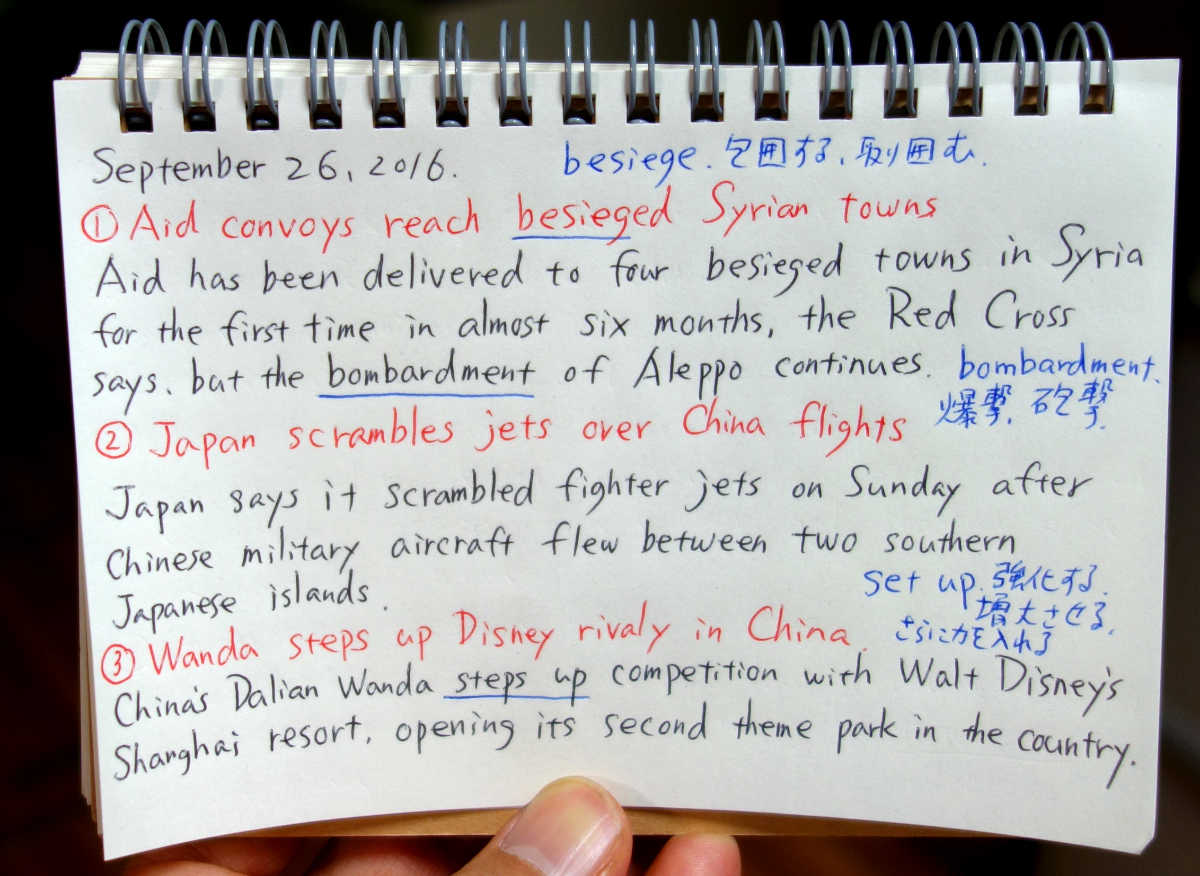 September 26, 2016.
besiege. 包囲する、取り囲む.
① Aid convoys reach besieged Syrian towns
Aid has been delivered to four besieged towns in Syria
for the first time in almost six months, the Red Cross
says. but the bombardment of Aleppo continues.
bombardment.
爆撃. 砲撃.
② Japan scrambles jets over China flights
Japan says it scrambled fighter jets on Sunday after
Chinese military aircraft flew between two southern
Japanese islands.
set up. 強化する.
増大させる.
さらに力を入れる
③ Wanda steps up Disney rivaly in China.
China's Dalian Wanda steps up competition with Walt Disney's
Shanghai resort, opening its second theme park in the country.